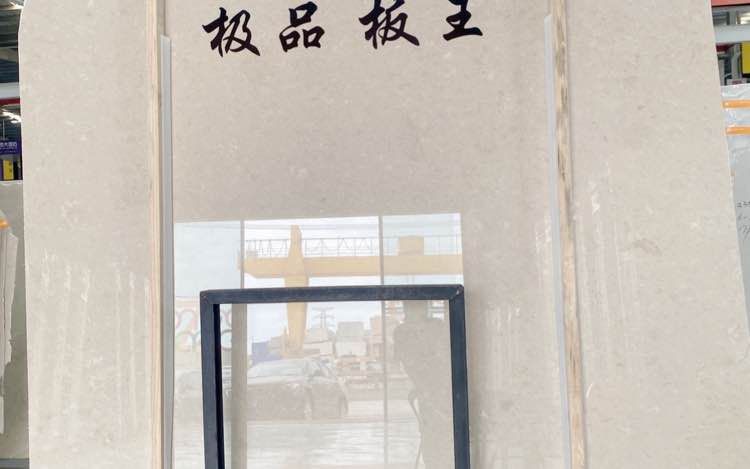 极品板王